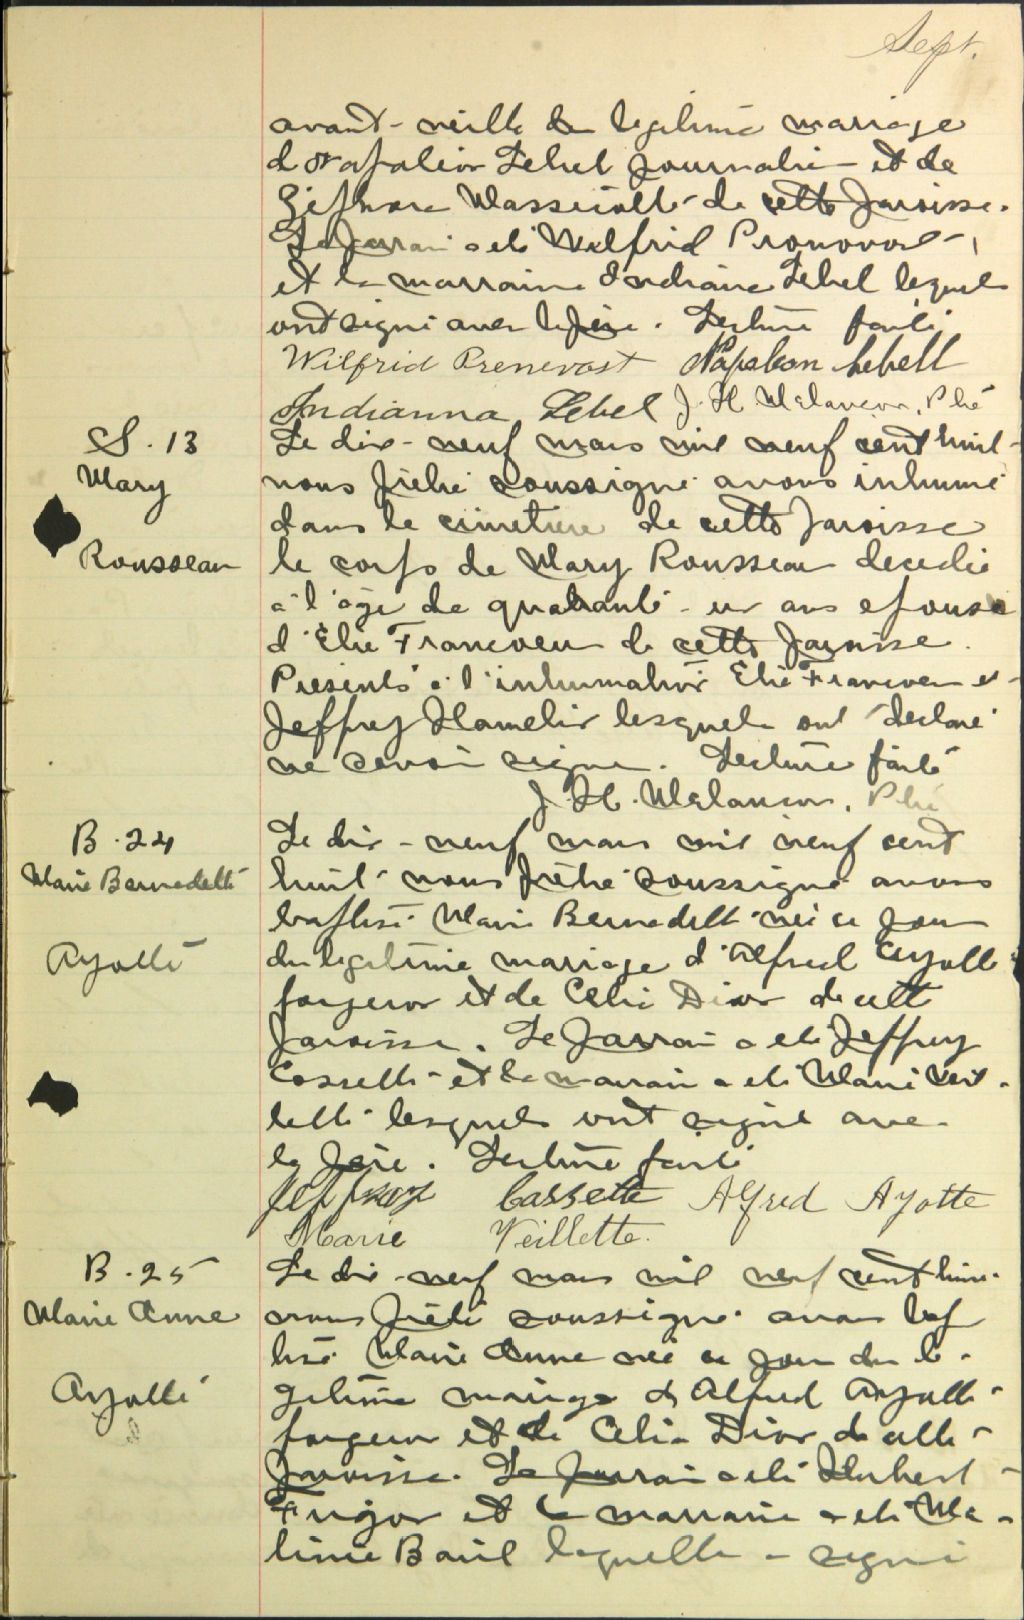 Sept.
avant-veille du legitime mariage
d Napoleon Lebel journalier et de
Massicotte de cette Paroisse.
Le Parrain a ete Wilfrid Pronovost
et la marraine Indiana Lebel lesquels
ont signé avec le père. Lecture faite
Wilfrid Prenevost Napoleon Lebell
Indianna Lebel J. H. Melancon, Ptre
S. 13
Mary
Rousseau
Le dix-neuf mars mil neuf cent huit
nous prêtre soussigné avons inhumé
dans le cimetiere de cette Paroisse
le corps de Mary Rousseau decedée
à l'age de quarante-un ans epouse
d'Elie Francoeur de cette Paroisse.
Presents à l'inhumation Elie Francoeur et
Jeffrey Hamelin lesquels ont declaré
ne savoir signer. Lecture faite
J. H. Melancon, Ptre
B. 24
Marie Bernadette
Ayotte
Le dix-neuf mars mil neuf cent
huit nous prêtre soussigné avons
baptisé Marie Bernadette née ce jour
du legitime mariage d'Alfred Ayotte
forgeron et de Celia Dion de cette
Paroisse. Le Parrain a ete Jeffrey
Cossette et la marraine a ete Marie Veil-
lette lesquels ont signé avec
le père. Lecture faite
Jeffrey Cossette Alfred Ayotte
Marie Veillette.
B. 25
Marie Anne
Ayotte
Le dix-neuf mars mil neuf cent huit
nous prêtre soussigné avons bap
tisé Marie Anne née ce jour du le-
gitime mariage d Alfred Ayotte
forgeron et de Celia Dion de cette
Paroisse. Le Parrain a ete Herbert
Frigon et la marraine a ete Me-
lina Baril laquelle a signé